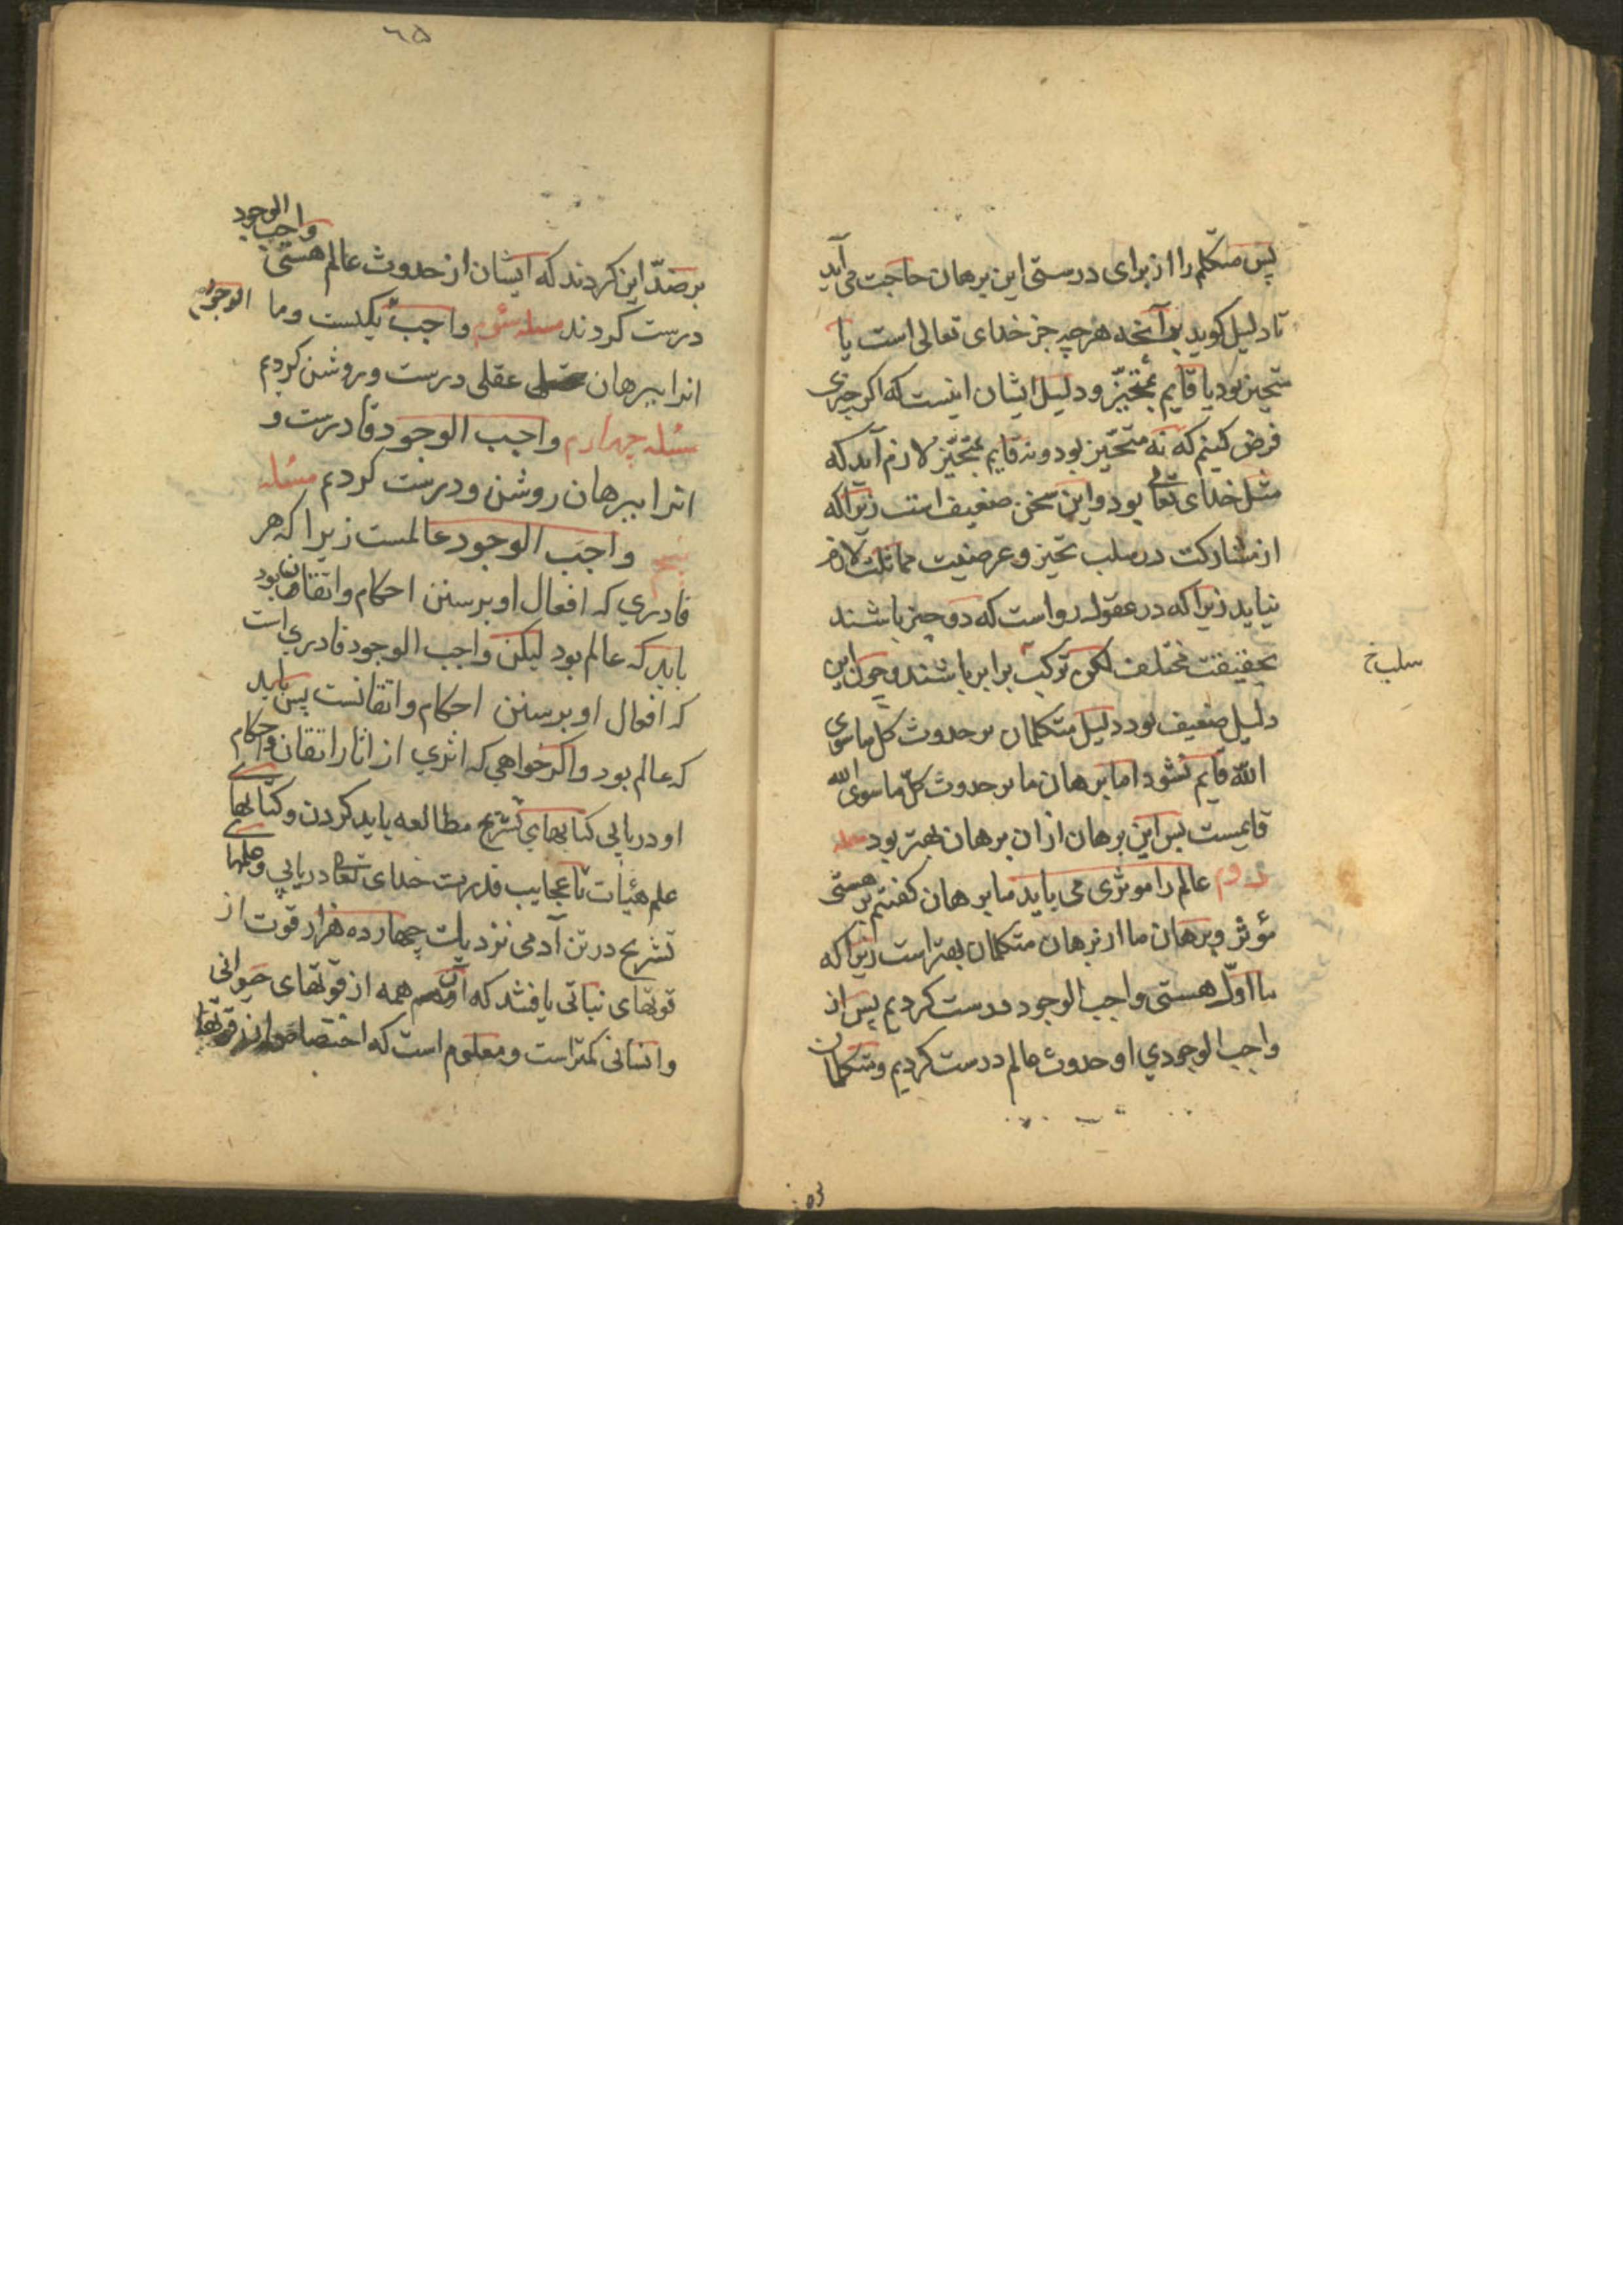 پس متکلم را از برای درستی این برهان حاجت می آید
تا دلیل کوید بر آنچه هرچه جز خدای تعالی است یا
متحیز بود یا قایم بمتحیز و دلیل ایشان اینست که اکر چیزی
فرض کنیم که نه متحیز بود و نه قایم بمتحیز لازم آید که
مثل خدای تعالی بود و این سخن ضعیف است زیرا که
از مشارکت در سلب تحیز و عرضیت مماثلت لازم
نیاید زیرا که در عقول رواست که دو چیز باشند
بحقیقت مختلف لکن برابر باشند و چون این
سلب خ
دلیل ضعیف بود دلیل متکلمان بر حدوث کل ما سوی
الله قایم نشود اما برهان ما بر حدوث کل ما سوی الله
قایمست پس این برهان از ان برهان بهتر بود مسله
دوم عالم را موثری می باید ما برهان کفتیم بر هستی
مؤثر و برهان ما از برهان متکلمان بهتر است زیرا که
ما اول هستی واجب الوجود درست کردیم پس از
واجب الوجودی او حدوث عالم درست کردیم و متکلمان
۵۳
۶۵
بر ضد این کردند که ایشان از حدوث عالم هستی واجب الوجود
درست کردند مسله سوم واجب الوجود یکیست و ما
انرا ببرهان عقلی درست و روشن کردیم
مسله چهارم واجب الوجود قادرست و
انرا ببرهان روشن و درست کردیم مسئله
پنجم واجب الوجود عالمست زیرا که هر
قادری که افعال او بر سنن احکام و اتقان بود
باید که عالم بود لیکن واجب الوجود قادری است
که افعال او بر سنن احکام و اتقانست پس باید
که عالم بود و اکر خواهی که اثری از اثار اتقان و احکام
او دریابی کتابهای تشریح مطالعه باید کردن و کتابهای
علم هیئات تا عجایب قدرت خدای تعالی دریابی و علمهای
تشریح در تن آدمی نزدیک چهارده هزار قوت از
قوتهای نباتی یافتند که آن همه از قوتهای حیوانی
و انسانی کمتر است و معلوم است که اختصاص